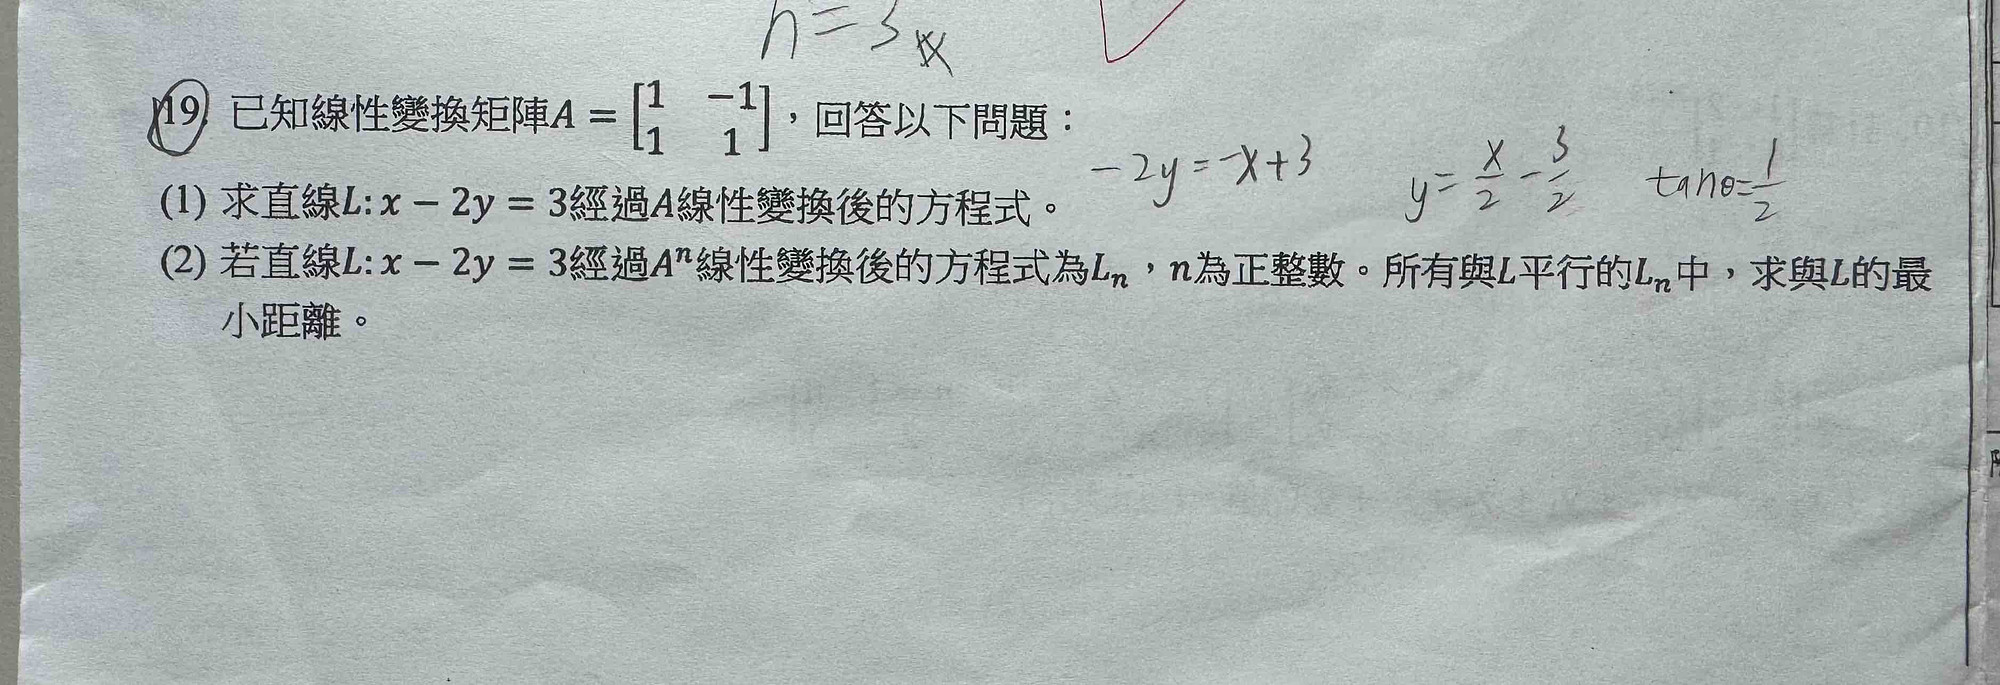 n = 3
19. 已知線性變換矩陣A = [1 -1
1 1]，回答以下問題：
(1) 求直線L: x − 2y = 3經過A線性變換後的方程式。
-2y = -x+3 y = x/2 - 3/2 tanθ = 1/2
(2) 若直線L: x − 2y = 3經過Aⁿ線性變換後的方程式為Lₙ，n為正整數。所有與L平行的Lₙ中，求與L的最
小距離。